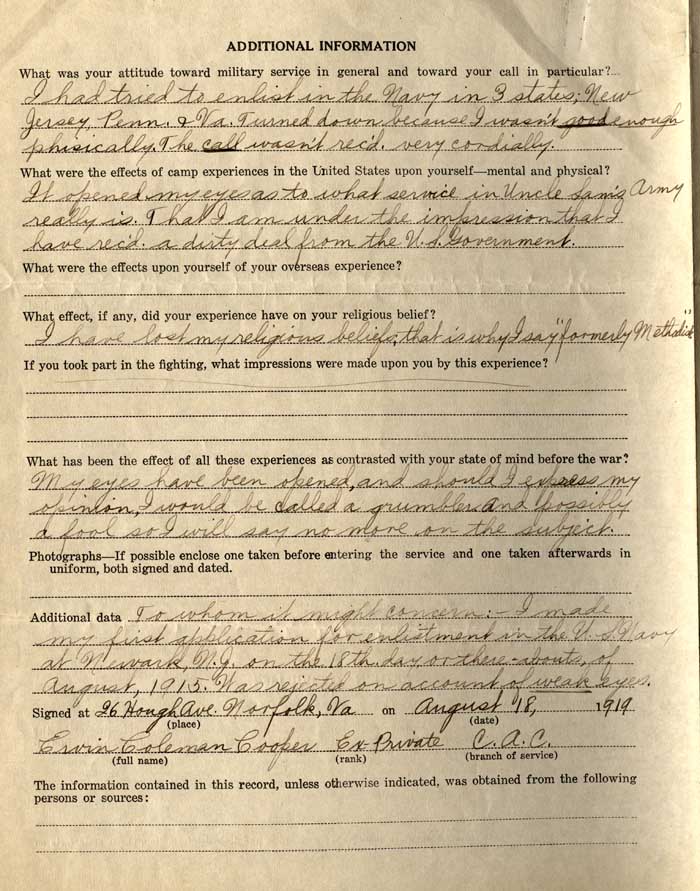 ADDITIONAL INFORMATION
What was your attitude toward military service in general and toward your call in particular?
I had tried to enlist in the Navy in 3 states; New
Jersey, Penn. & Va. Turned down because I wasn't good enough
phisically. The call wasn't rec'd. very cordially.
What were the effects of camp experiences in the United States upon yourself—mental and physical?
It opened my eyes as to what service in Uncle Sam's Army
really is. That I am under the impression that I
have rec'd. a dirty deal from the U.S. Government.
What were the effects upon yourself of your overseas experience?
What effect, if any, did your experience have on your religious belief?
I have lost my religious beliefs, that is why I say "formerly Methodist"
If you took part in the fighting, what impressions were made upon you by this experience?
What has been the effect of all these experiences as contrasted with your state of mind before the war?
My eyes have been opened, and should I express my
opinion, I would be called a grumbler and possibly
a fool so I will say no more on the subject.
Photographs—If possible enclose one taken before entering the service and one taken afterwards in
uniform, both signed and dated.
Additional data To whom it might concern:- I made
my first application for enlistment in the U.S. Navy
at Newark, N.J. on the 18th. day or there-abouts, of
August, 1915. Was rejected on account of weak eyes.
Signed at 26 Hough Ave. Norfolk, Va on August 18, 1919
(place) (date)
Ervin Coleman Cooper Ex-Private C.A.C.
(full name) (rank) (branch of service)
The information contained in this record, unless otherwise indicated, was obtained from the following
persons or sources: